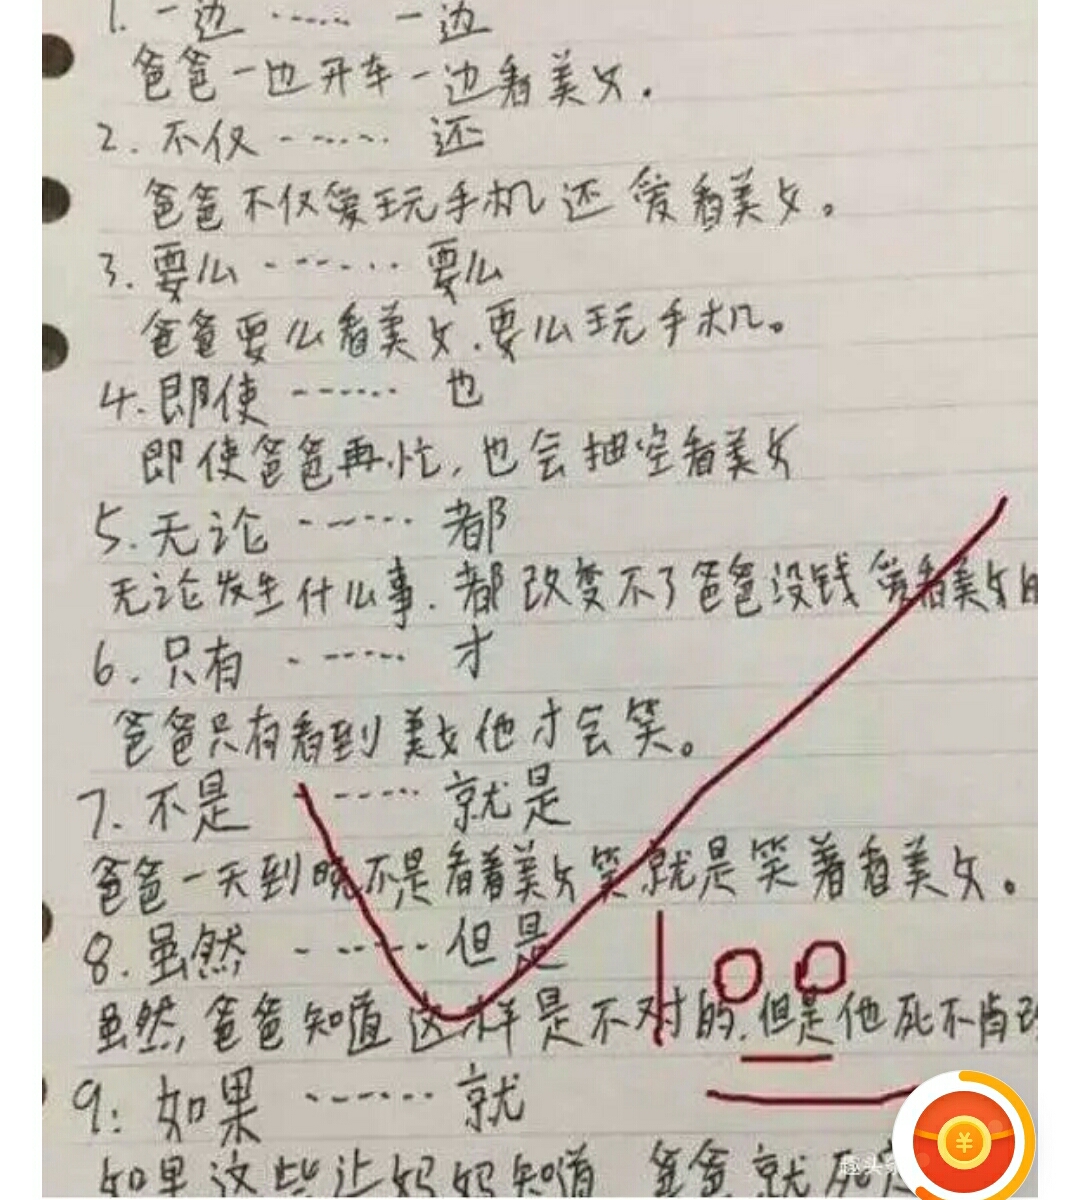 1. 一边 ······ 一边
爸爸一边开车一边看美女.
2. 不仅 ······ 还
爸爸不仅爱玩手机还爱看美女。
3. 要么 ······ 要么
爸爸要么看美女.要么玩手机。
4. 即使 ······ 也
即使爸爸再忙,也会抽空看美女
5. 无论 ······ 都
无论发生什么事.都改变不了爸爸没钱爱看美女的
6. 只有 ······ 才
爸爸只有看到美女他才会笑。
7. 不是 ······ 就是
爸爸一天到晚不是看着美女笑就是笑着看美女。
8. 虽然 ······ 但是
100
虽然,爸爸知道这样是不对的.但是他死不肯改
9: 如果 ······ 就
如果这些让妈妈知道 爸爸就死定
趣头条
¥